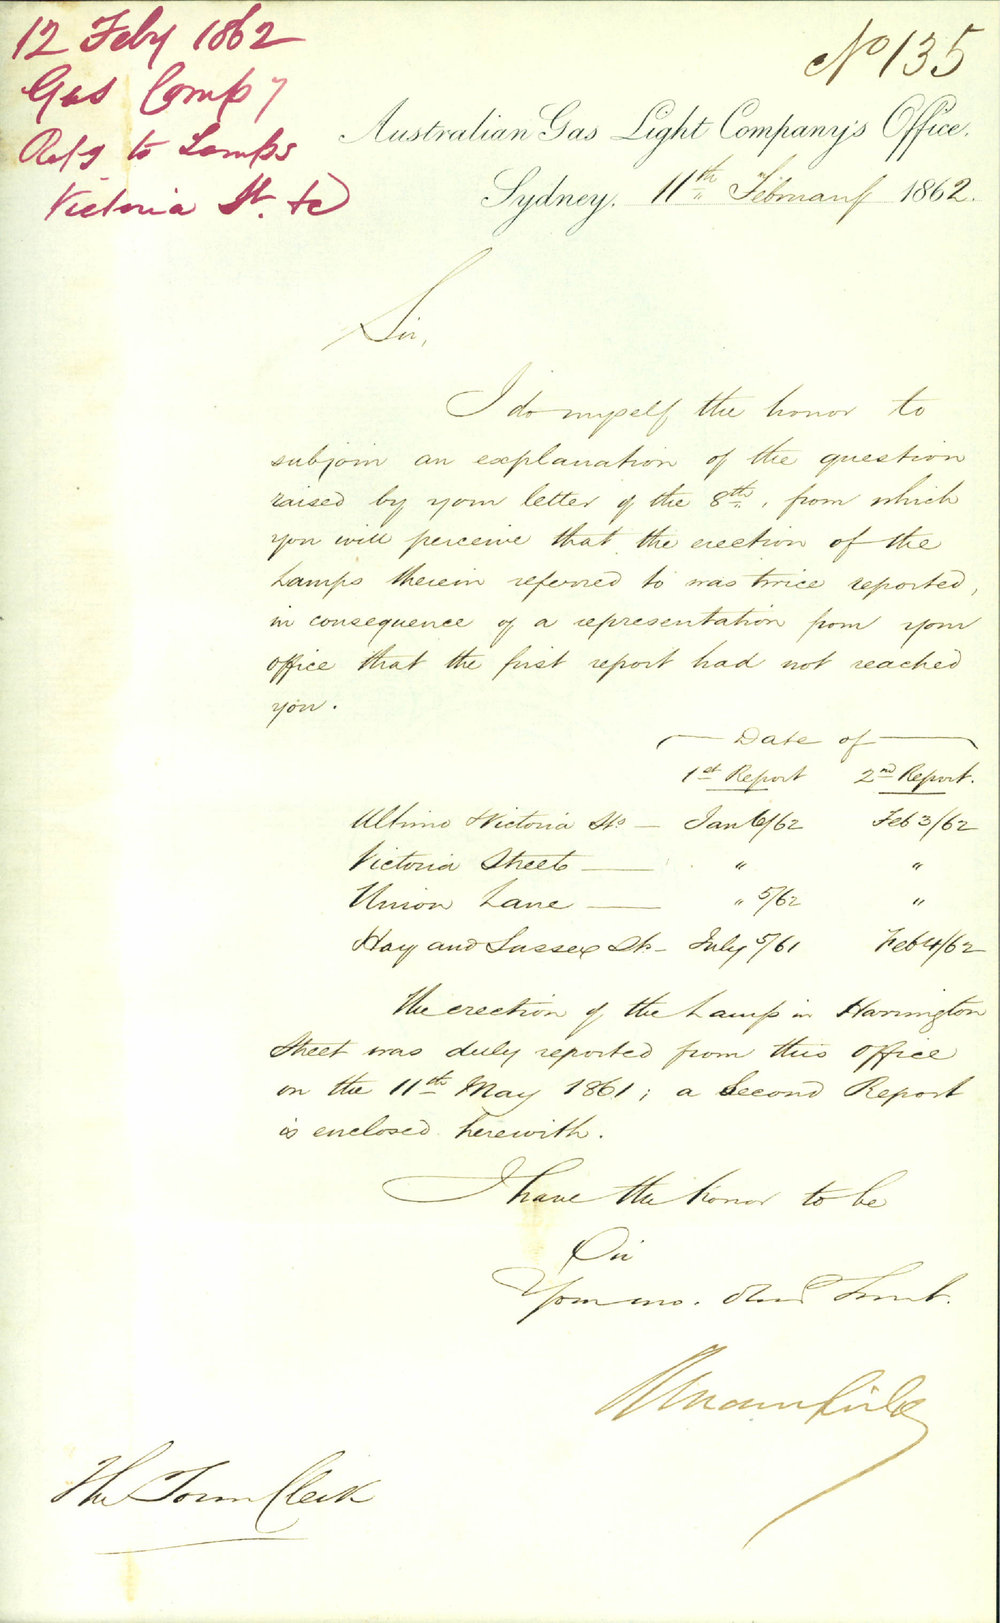 12 Feby 1862
Gas Compy
Refg to Lamps
Victoria St. &c
No 135
Australian Gas Light Company's Office.
Sydney, 11th February 1862.
Sir,
I do myself the honor to
subjoin an explanation of the question
raised by your letter of the 8th, from which
you will perceive that the erection of the
Lamps therein referred to was twice reported,
in consequence of a representation from your
office that the first report had not reached
you.
Date of
1st Report 2nd Report.
Ultimo & Victoria Sts — Jan 6/62 Feb 3/62
Victoria Street — " "
Union Lane — " 5/62 "
Hay and Sussex Sts — July 5/61 Feb 4/62
The erection of the Lamp in Harrington
Street was duly reported from this office
on the 11th May 1861; a Second Report
is enclosed herewith.
I have the honor to be
Sir
Your mo. Obed Servt.
The Town Clerk